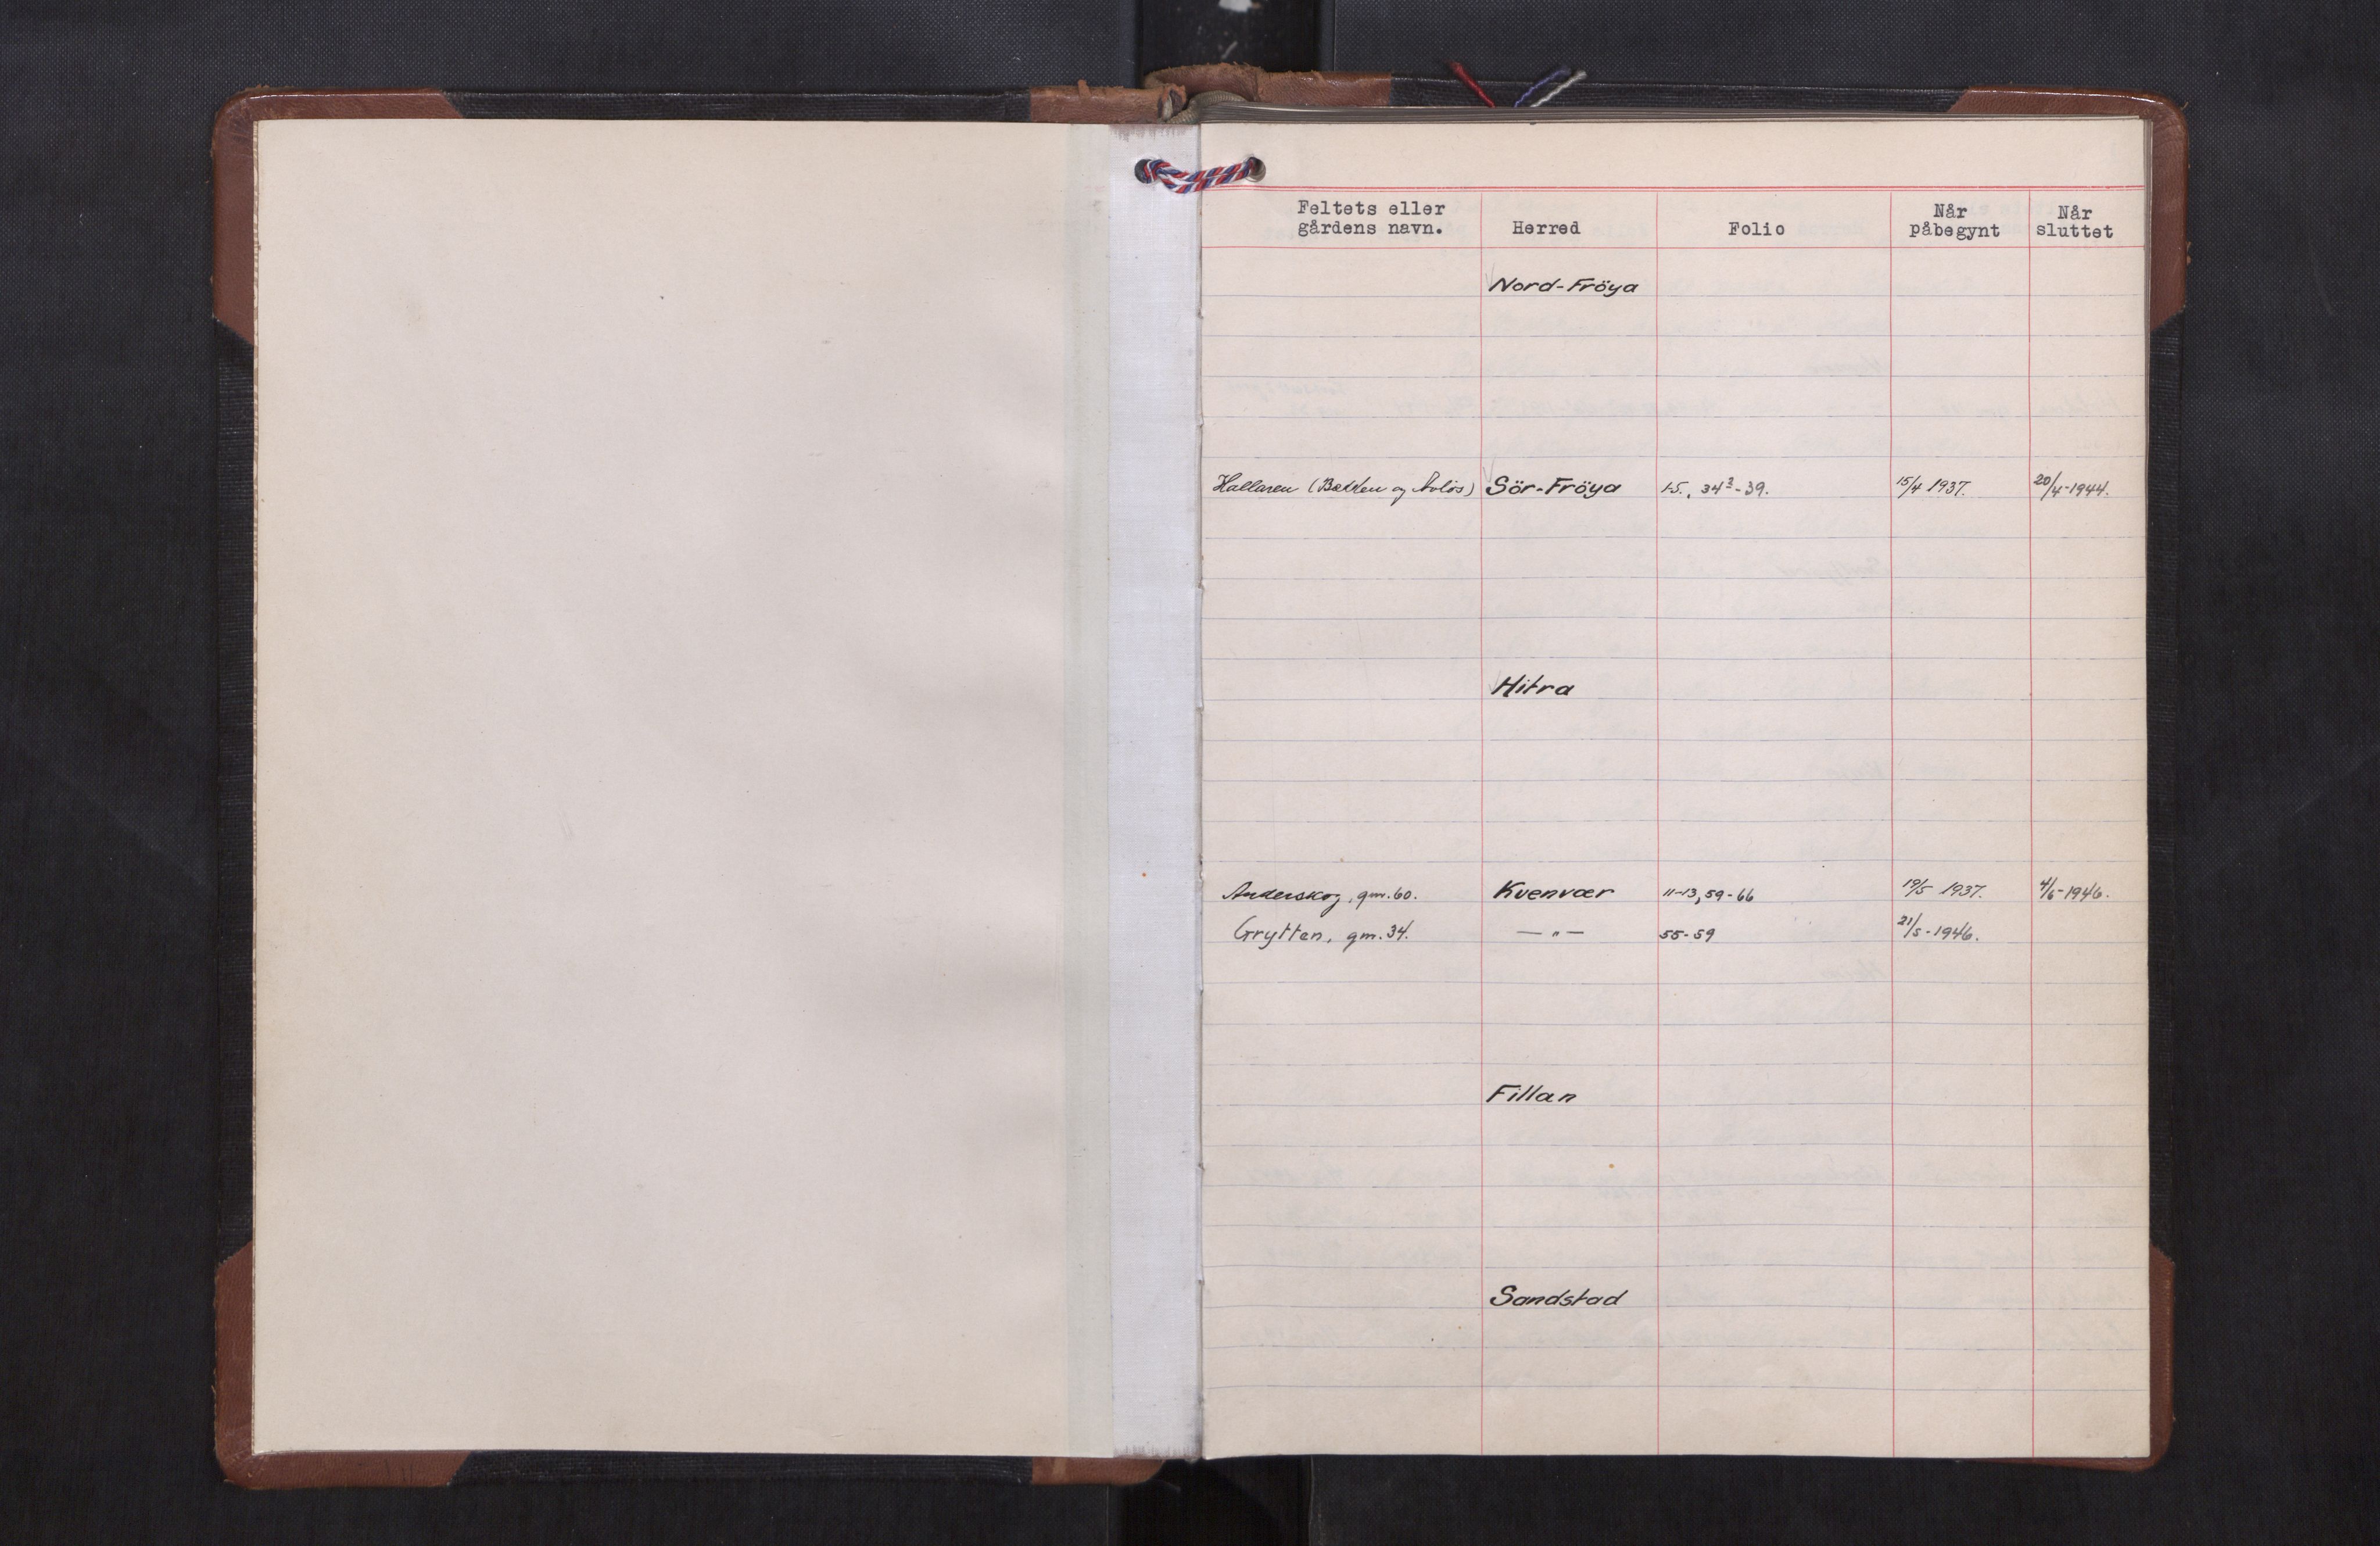 Feltets eller gårdens navn. Herred Folio Når påbegynt Når sluttet
Nord-Fröya
Hallaren (Bekken og Avlös) Sör-Fröya 1-5, 34²-39. 15/4 1937. 20/4-1944.
Hitra
Anderskog, gnr. 60. Kvenvær 11-13, 59-66 19/5 1937. 4/6-1946.
Grytten, gnr. 34. — " — 55-59 21/5-1946.
Fillan
Sandstad